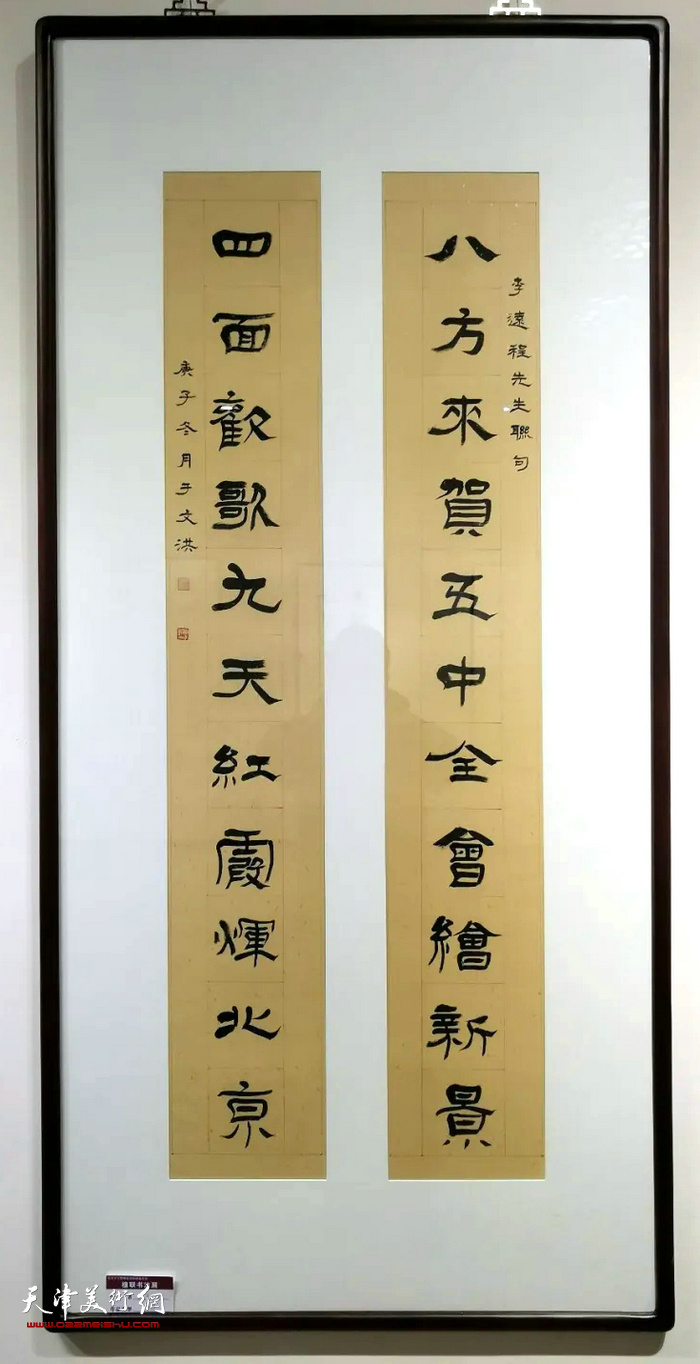 八方來賀五中全會繪新景
李遠程先生聯句
四面歡歌九天紅霞輝北京
庚子冬月于文洪
楹联书法展
天津美術網
www.022meishu.com